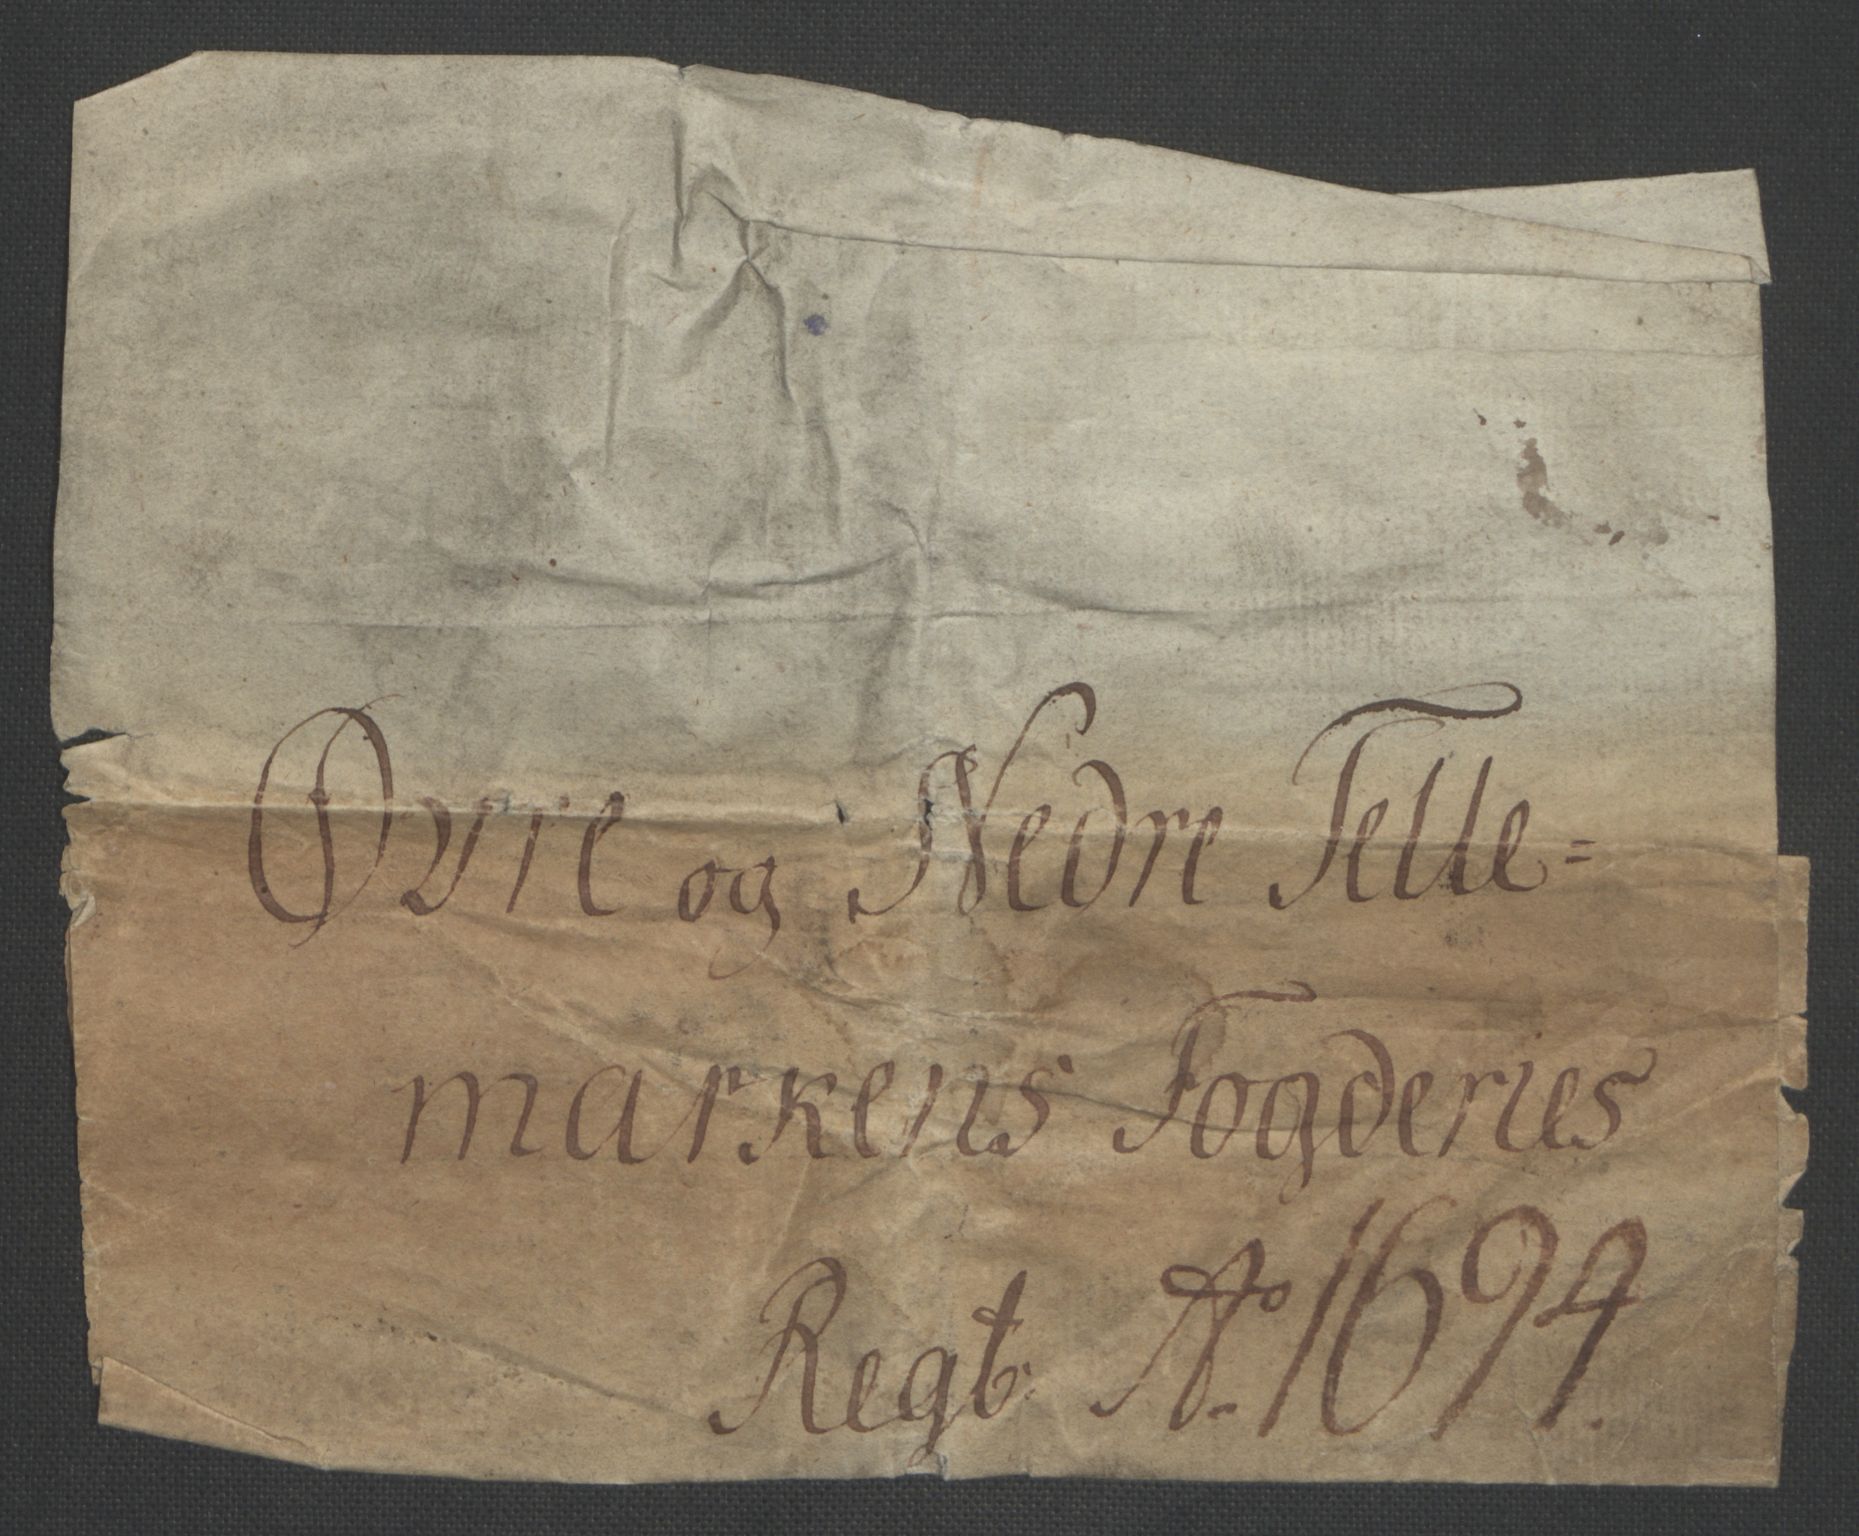 Øvre og Nedre Telle=
markens Fogderies
Regb: Ao. 1694.